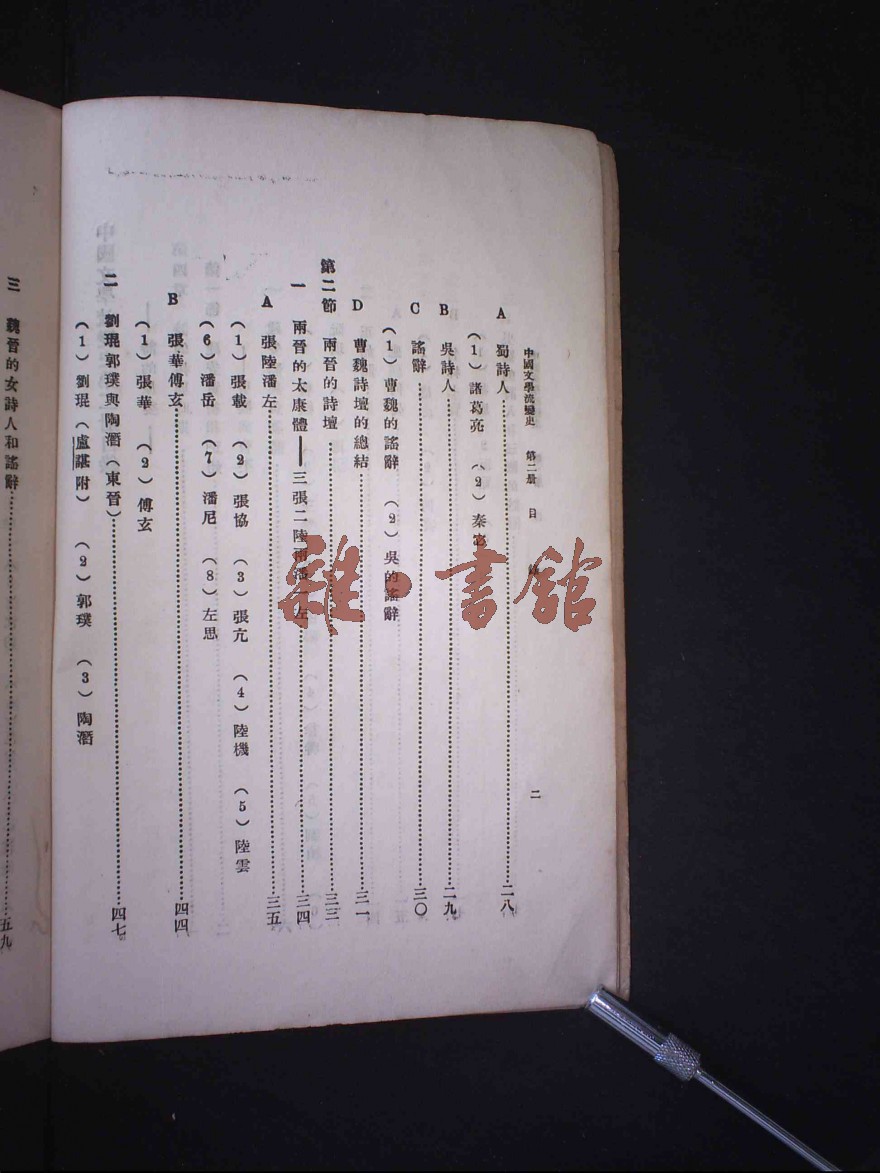 中國文學流變史 第二册 目 錄 二
A 蜀詩人 二八
（1）諸葛亮 （2）秦宓
B 吳詩人 二九
C 謠辭 三〇
（1）曹魏的謠辭 （2）吳的謠辭
D 曹魏詩壇的總結 三一
第二節 兩晉的詩壇 三三
一 兩晉的太康體——三張二陸兩潘一左 三四
A 張陸潘左 三五
（1）張載 （2）張協 （3）張亢 （4）陸機 （5）陸雲
（6）潘岳 （7）潘尼 （8）左思
B 張華傅玄 四四
（1）張華 （2）傅玄
二 劉琨郭璞與陶潛（東晉） 四七
（1）劉琨（盧諶附） （2）郭璞 （3）陶潛
三 魏晉的女詩人和謠辭 五九
雜·書館